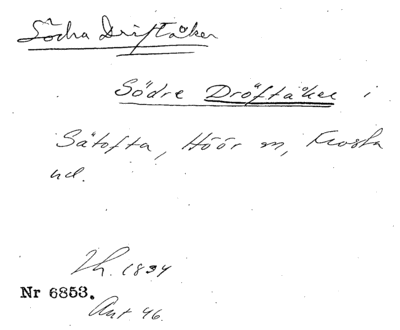 Södra Driftåker
Södre Dröftåker i
Sätofta, Höör sn, Frosta
hd.
Lh. 1834
Nr 6853.
Akt 46.